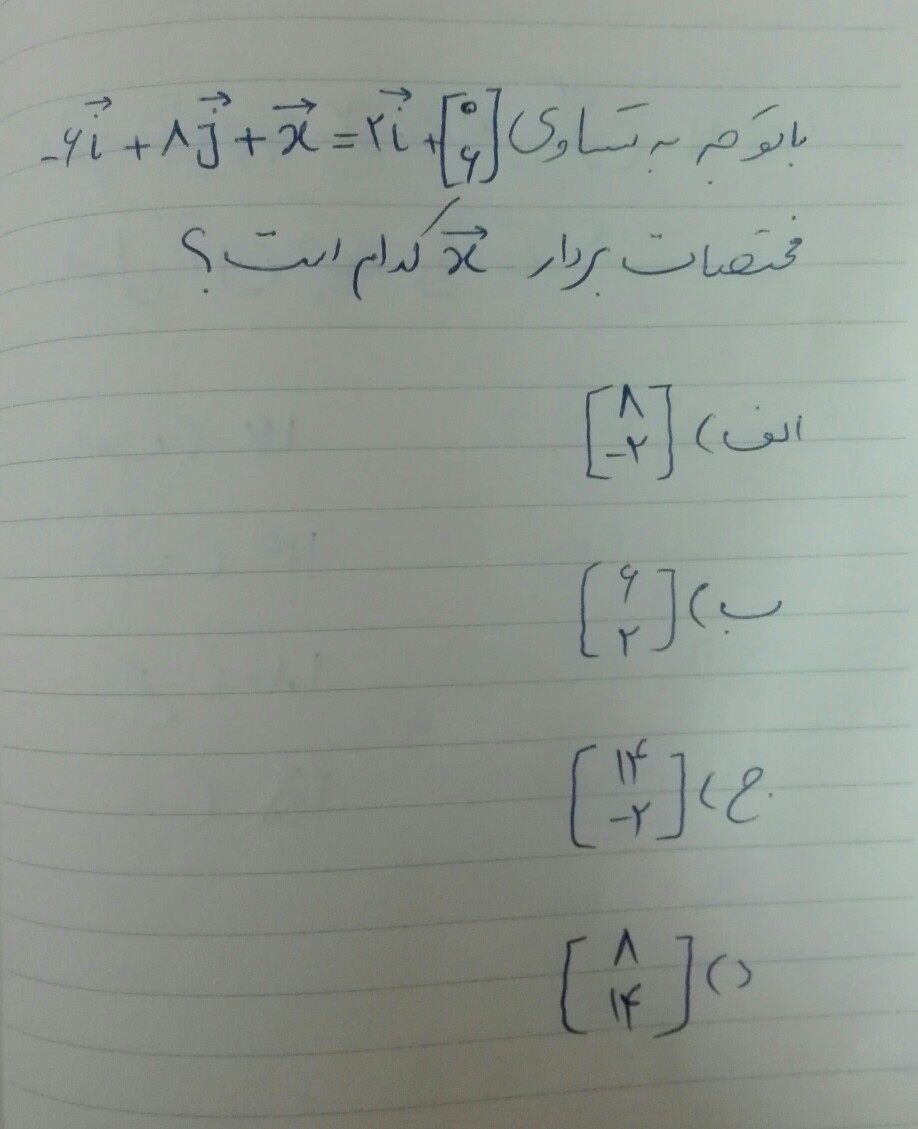 با توجه به تساوی -۶i⃗ + ۸j⃗ + x⃗ = ۲i⃗ + [۰ ۶]
مختصات بردار x⃗ کدام است؟
الف) [۸ -۲]
ب) [۶ ۲]
ج) [۱۴ -۲]
د) [۸ ۱۴]